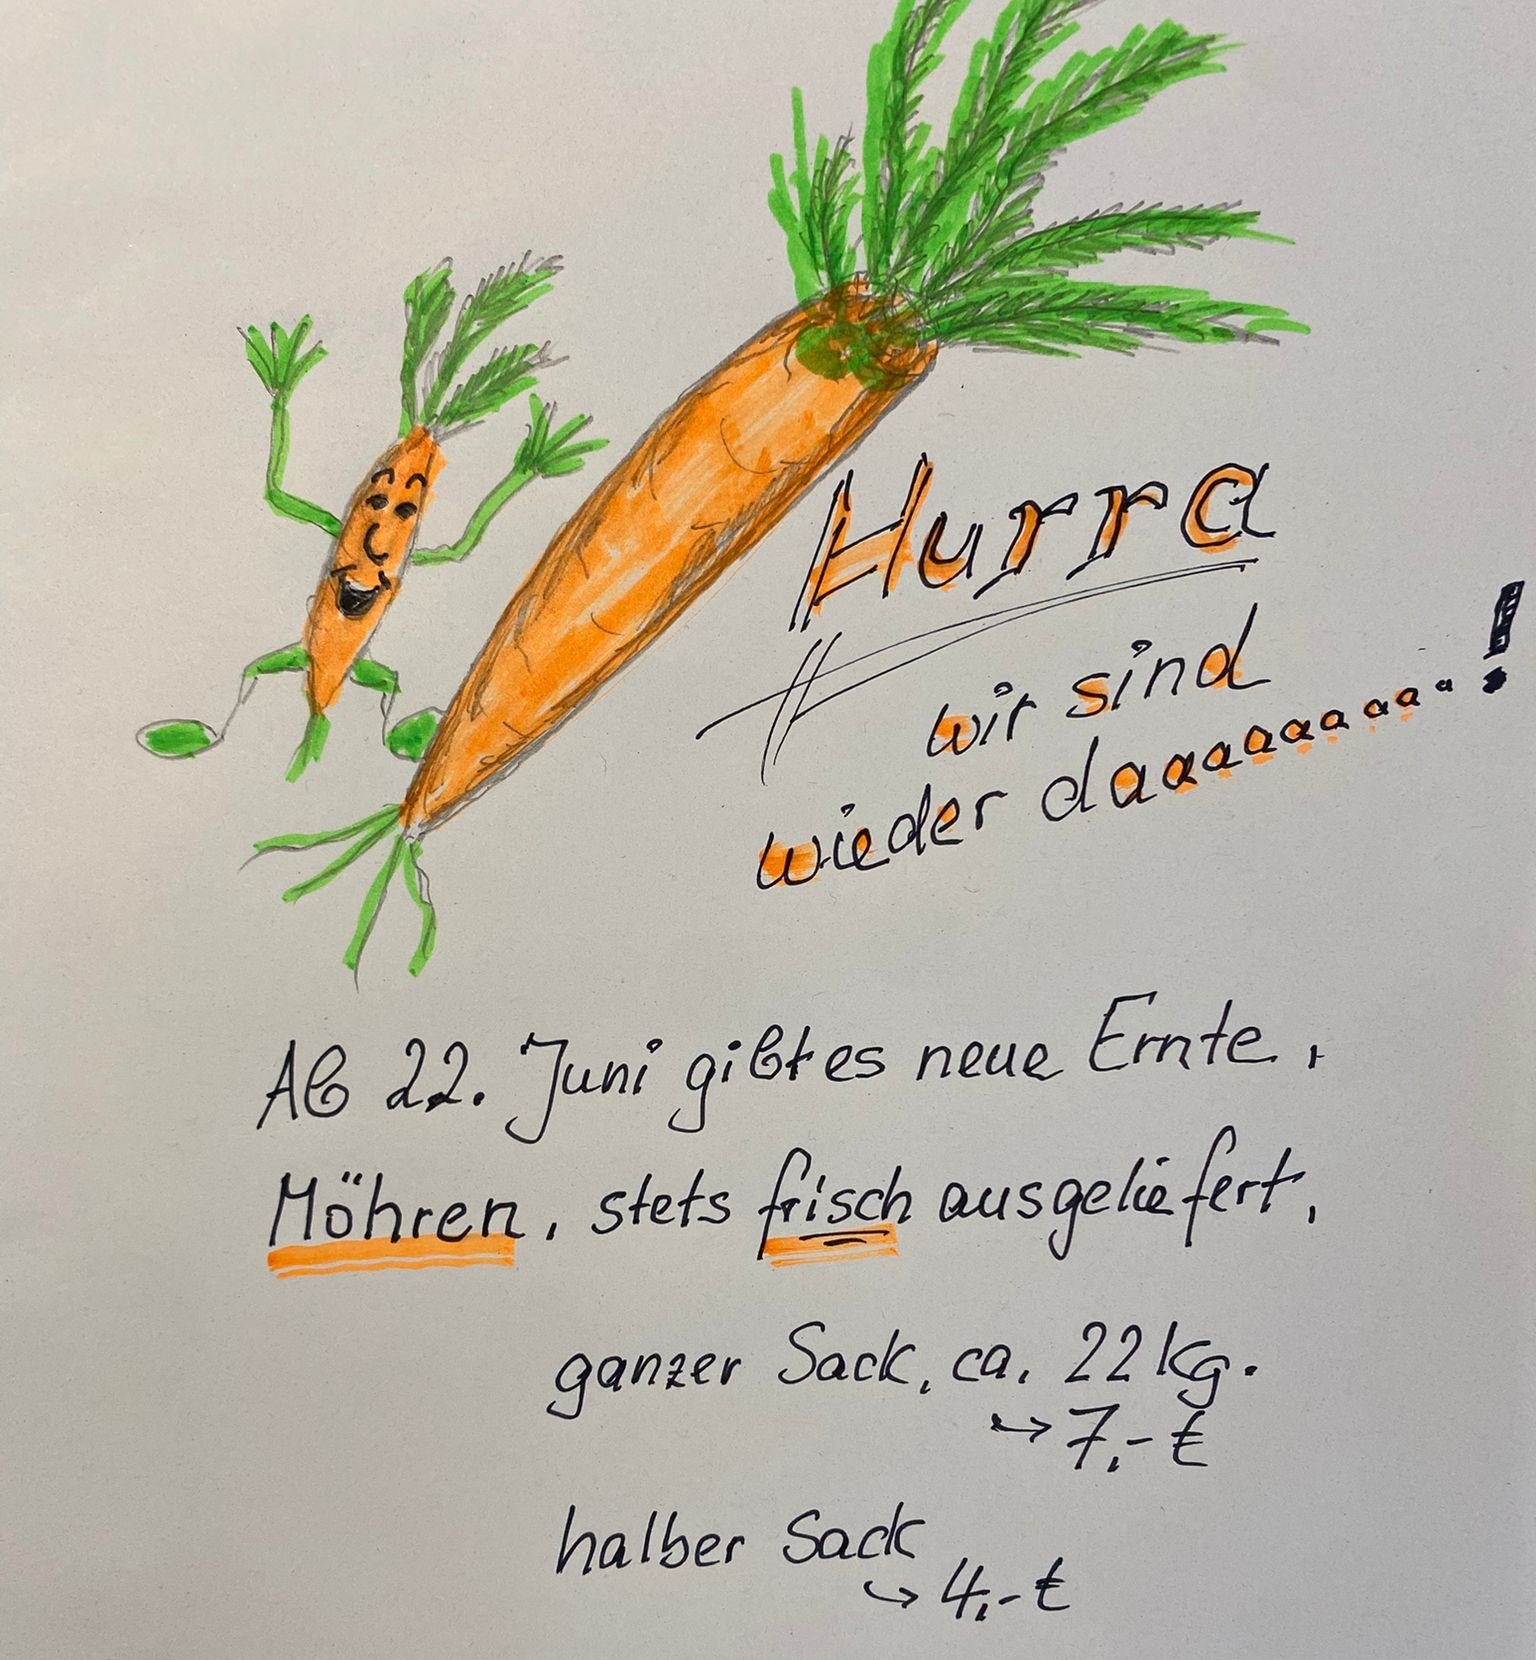 Hurra
wir sind
wieder daaaaaaaaaa!
Ab 22. Juni gibt es neue Ernte,
Möhren, stets frisch ausgeliefert,
ganzer Sack, ca. 22 kg.
↪ 7,- €
halber Sack
↪ 4,- €